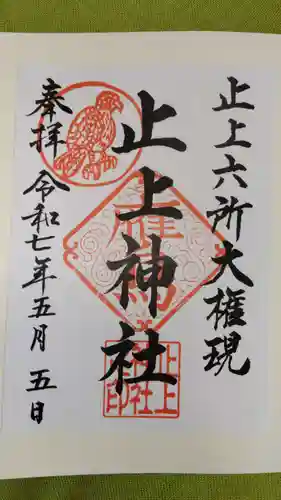 止上六所大権現
止上神社
奉拝
令和七年五月五日
止上
神社
印